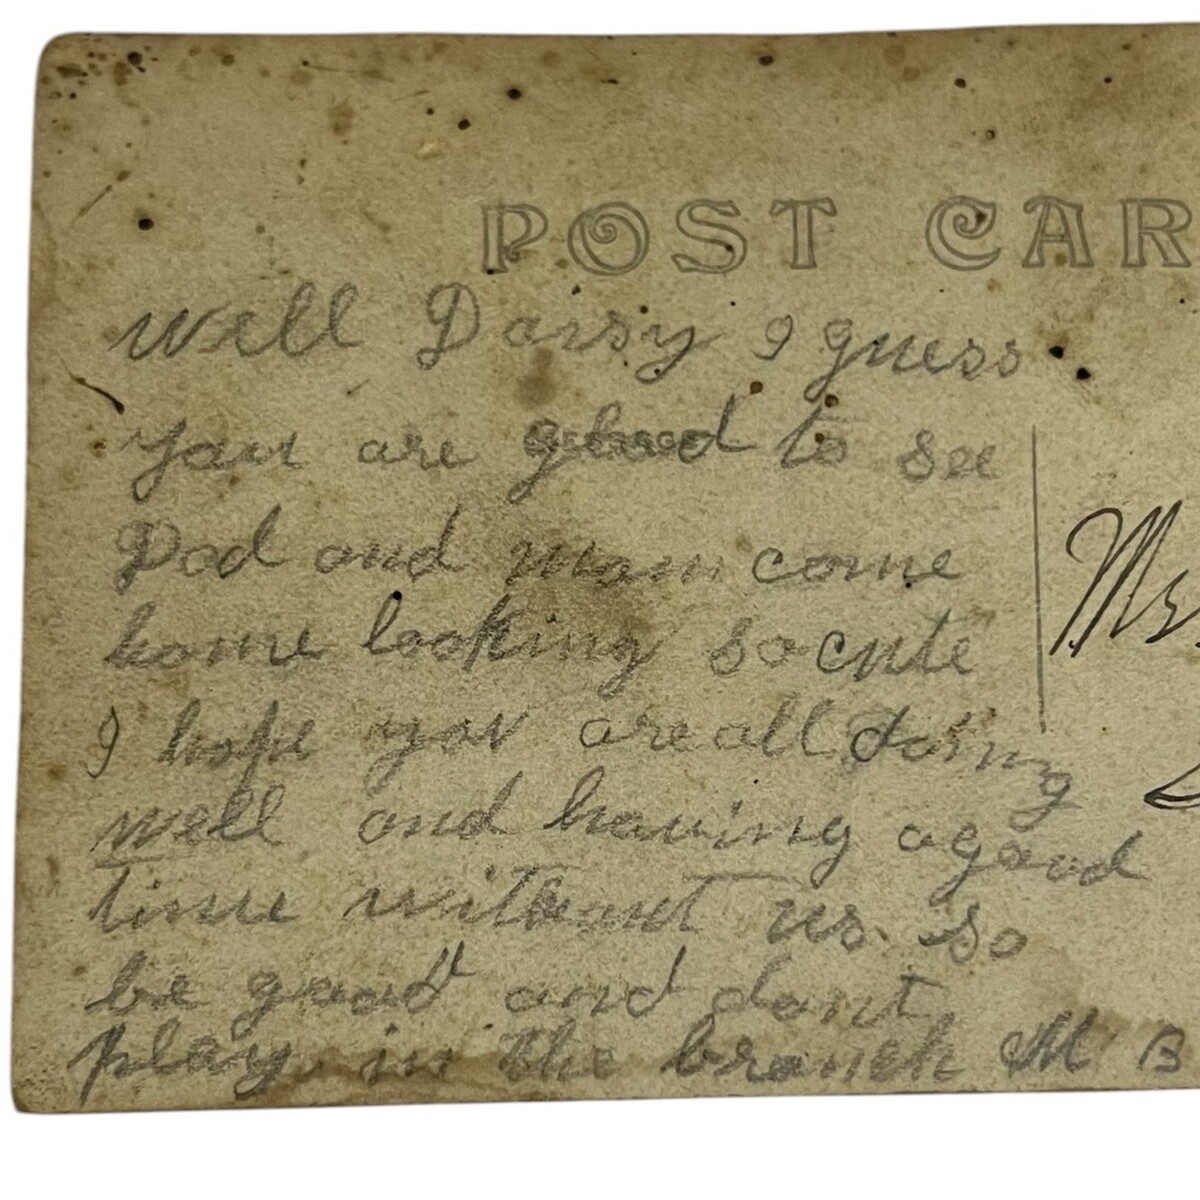 POST CAR
Well Daisy I guess
you are glad to see
Dad and mam come
home looking so cute
I hope you are all doing
well and having a good
time without us so
be good and dont
play in the branch M B